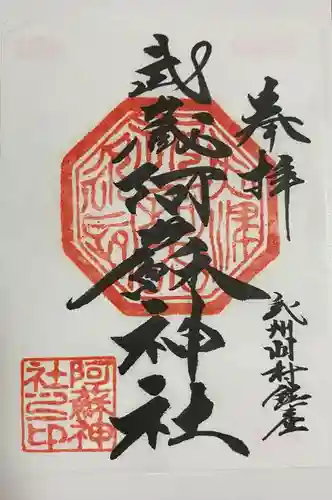 奉拝
武蔵阿蘇神社
武州川村鎮座
阿蘇神
社之印